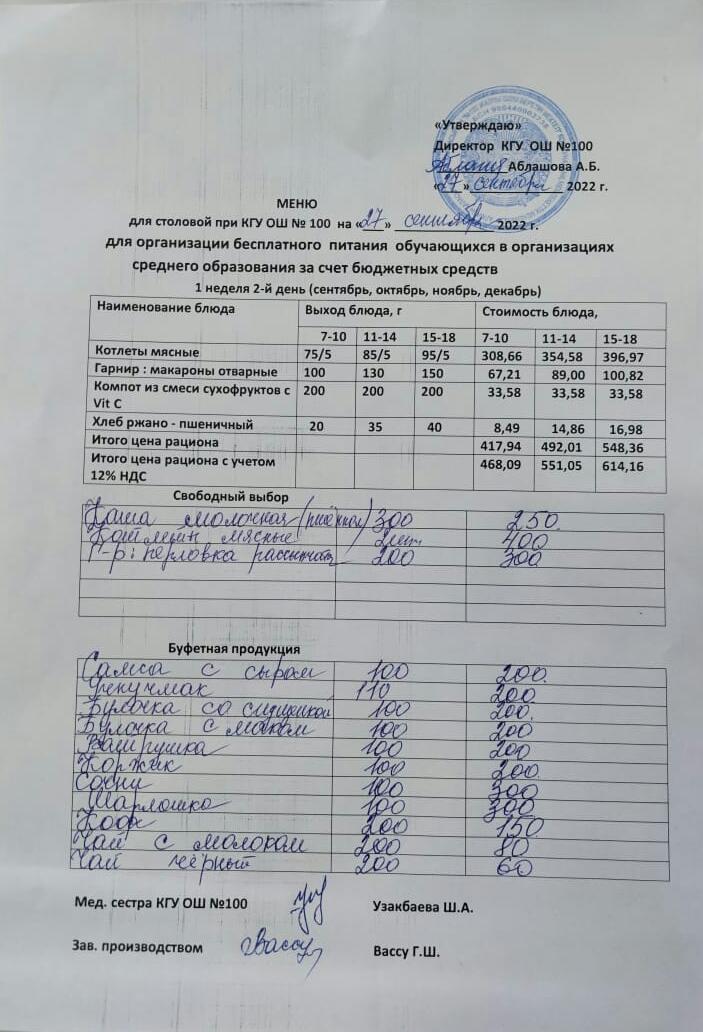 «Утверждаю»
Директор КГУ ОШ №100
Аблашова А.Б.
«27» сентября 2022 г.
МЕНЮ
для столовой при КГУ ОШ № 100 на «27» сентября 2022 г.
для организации бесплатного питания обучающихся в организациях
среднего образования за счет бюджетных средств
1 неделя 2-й день (сентябрь, октябрь, ноябрь, декабрь)
Наименование блюда Выход блюда, г Стоимость блюда,
7-10 11-14 15-18 7-10 11-14 15-18
Котлеты мясные 75/5 85/5 95/5 308,66 354,58 396,97
Гарнир : макароны отварные 100 130 150 67,21 89,00 100,82
Компот из смеси сухофруктов с 200 200 200 33,58 33,58 33,58
Vit C
Хлеб ржано - пшеничный 20 35 40 8,49 14,86 16,98
Итого цена рациона 417,94 492,01 548,36
Итого цена рациона с учетом 468,09 551,05 614,16
12% НДС
Свободный выбор
Каша молочная (пшённая) 300 250
мясные 2шт 400
Г-р: перловка 200 300
Буфетная продукция
Самса с сыром 100 200
Учпучмак 110 200
Булочка со сгущенкой 100 200
Булочка с маком 100 200
Ватрушка 100 200
Коржик 100 200
Сочни 100 300
Шарлотка 100 300
Кофе 200 150
Чай с молоком 200 80
Чай чёрный 200 60
Мед. сестра КГУ ОШ №100 Узакбаева Ш.А.
Зав. производством Вассу Вассу Г.Ш.